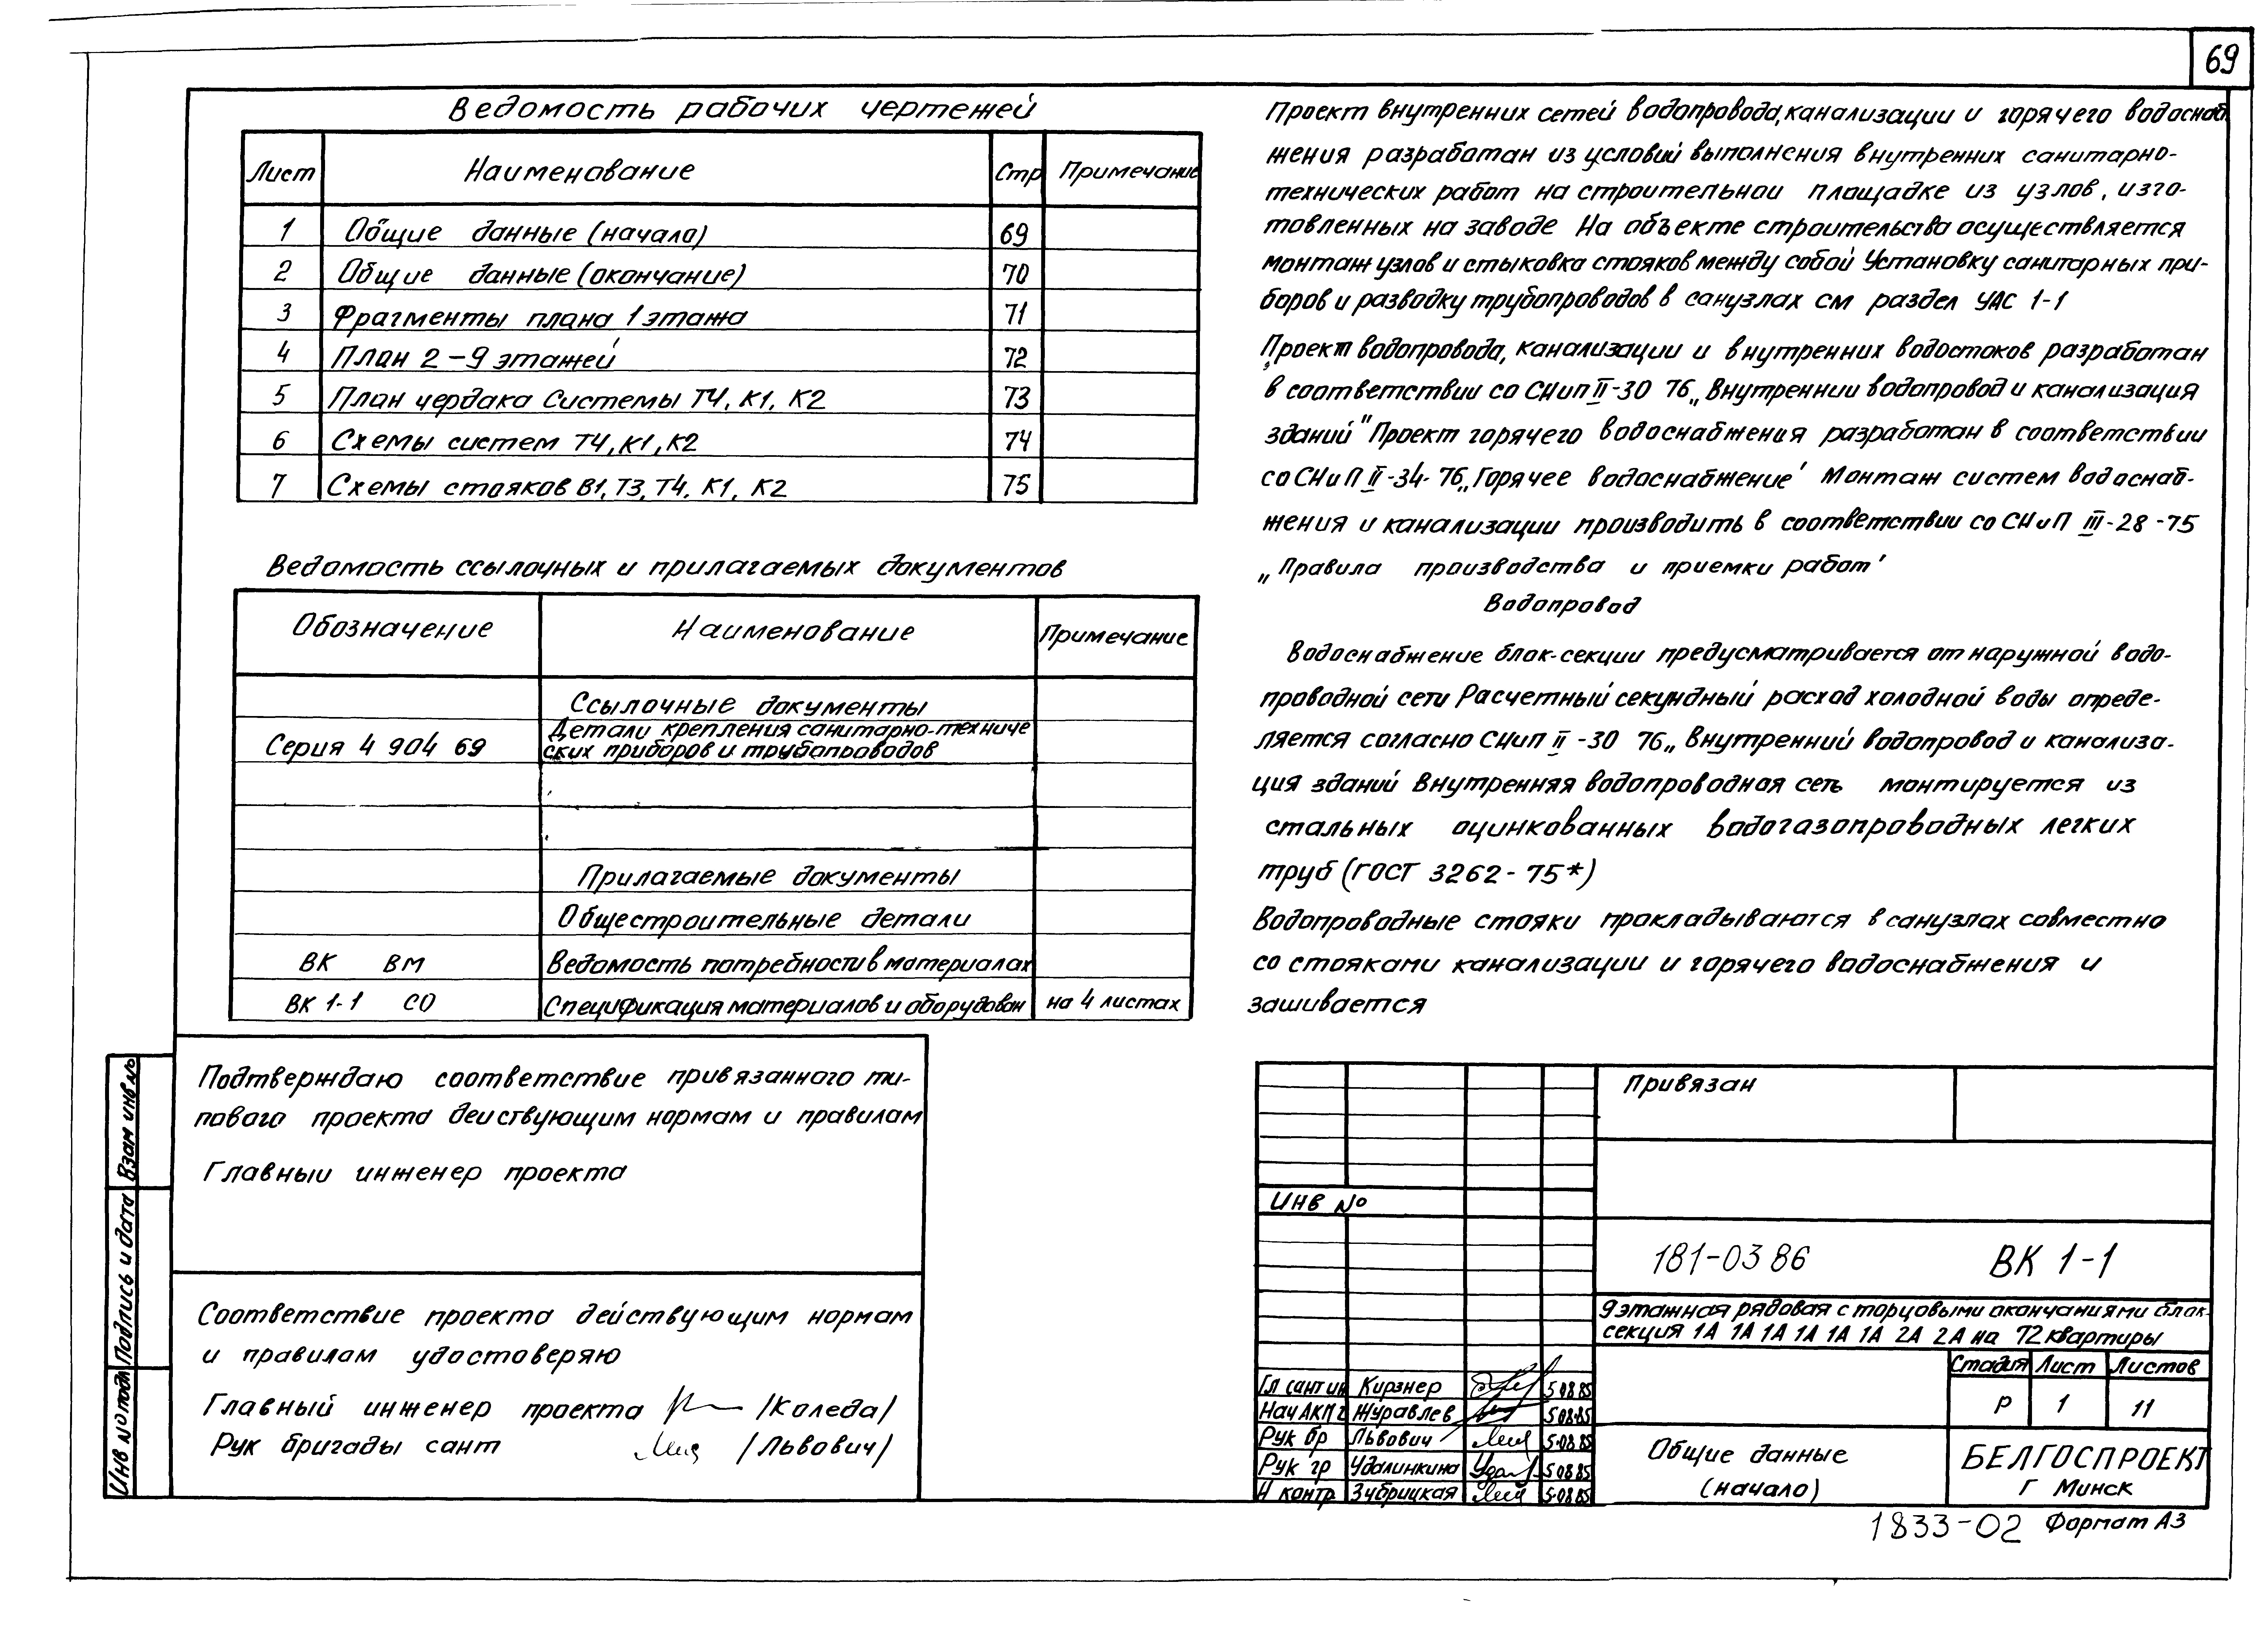 69
Ведомость рабочих чертежей
Лист Наименование Стр Примечание
1 Общие данные (начало) 69
2 Общие данные (окончание) 70
3 Фрагменты плана 1 этажа 71
4 План 2 – 9 этажей 72
5 План чердака Системы Т4, К1, К2 73
6 Схемы систем Т4, К1, К2 74
7 Схемы стояков В1, Т3, Т4, К1, К2 75
Ведомость ссылочных и прилагаемых документов
Обозначение Наименование Примечание
Ссылочные документы
Серия 4 904 69 Детали крепления санитарно-техниче
ских приборов и трубопроводов
Прилагаемые документы
Общестроительные детали
ВК ВМ Ведомость потребности в материалах
ВК 1-1 СО Спецификация материалов и оборудован на 4 листах
Подтверждаю соответствие привязанного ти-
пового проекта деиствующим нормам и правилам
Главныи инженер проекта
Соответствие проекта действующим нормам
и правилам удостоверяю
Главный инженер проекта /Коледа/
Рук бригады сант /Львович/
Взам инв №
Подпись и дата
Инв № подл
Проект внутренних сетей водопровода, канализации и горячего водоснаб
жения разработан из условий выполнения внутренних санитарно-
технических работ на строительнои площадке из узлов, изго-
товленных на заводе На объекте строительства осуществляется
монтаж узлов и стыковка стояков между собой Установку санитарных при-
боров и разводку трубопроводов в санузлах см раздел УАС 1-1
Проект водопровода, канализации и внутренних водостоков разработан
в соответствии со СНиП II-30 76 „Внутреннии водопровод и канализация
зданий" Проект горячего водоснабжения разработан в соответствии
со СНиП II-34-76 „Горячее водоснабжение' Монтаж систем водоснаб-
жения и канализации производить в соответствии со СНиП III-28-75
„Правила производства и приемки работ'
Водопровод
Водоснабжение блок-секции предусматривается от наружной водо-
проводной сети Расчетный секундный расход холодной воды опреде-
ляется согласно СНиП II-30 76 „Внутренний водопровод и канализа-
ция зданий Внутренняя водопроводная сеть монтируется из
стальных оцинкованных водогазопроводных легких
труб (ГОСТ 3262-75*)
Водопроводные стояки прокладываются в санузлах совместно
со стояками канализации и горячего водоснабжения и
зашивается
Привязан
Инв №
181-03 86 ВК 1-1
9 этажная рядовая с торцовыми окончаниями блок-
секция 1А 1А 1А 1А 1А 1А 2А 2А на 72 квартиры
Стадия Лист Листов
Р 1 11
Гл сантин Кирзнер 5 08 85
Нач АКПГ Журавлев 5 08 85
Рук бр Львович 5 08 85
Рук гр Удалинкина 5 08 85
Н контр Зубрицкая 5 08 85
Общие данные
(начало)
БЕЛГОСПРОЕКТ
г Минск
1833-02 Формат А3